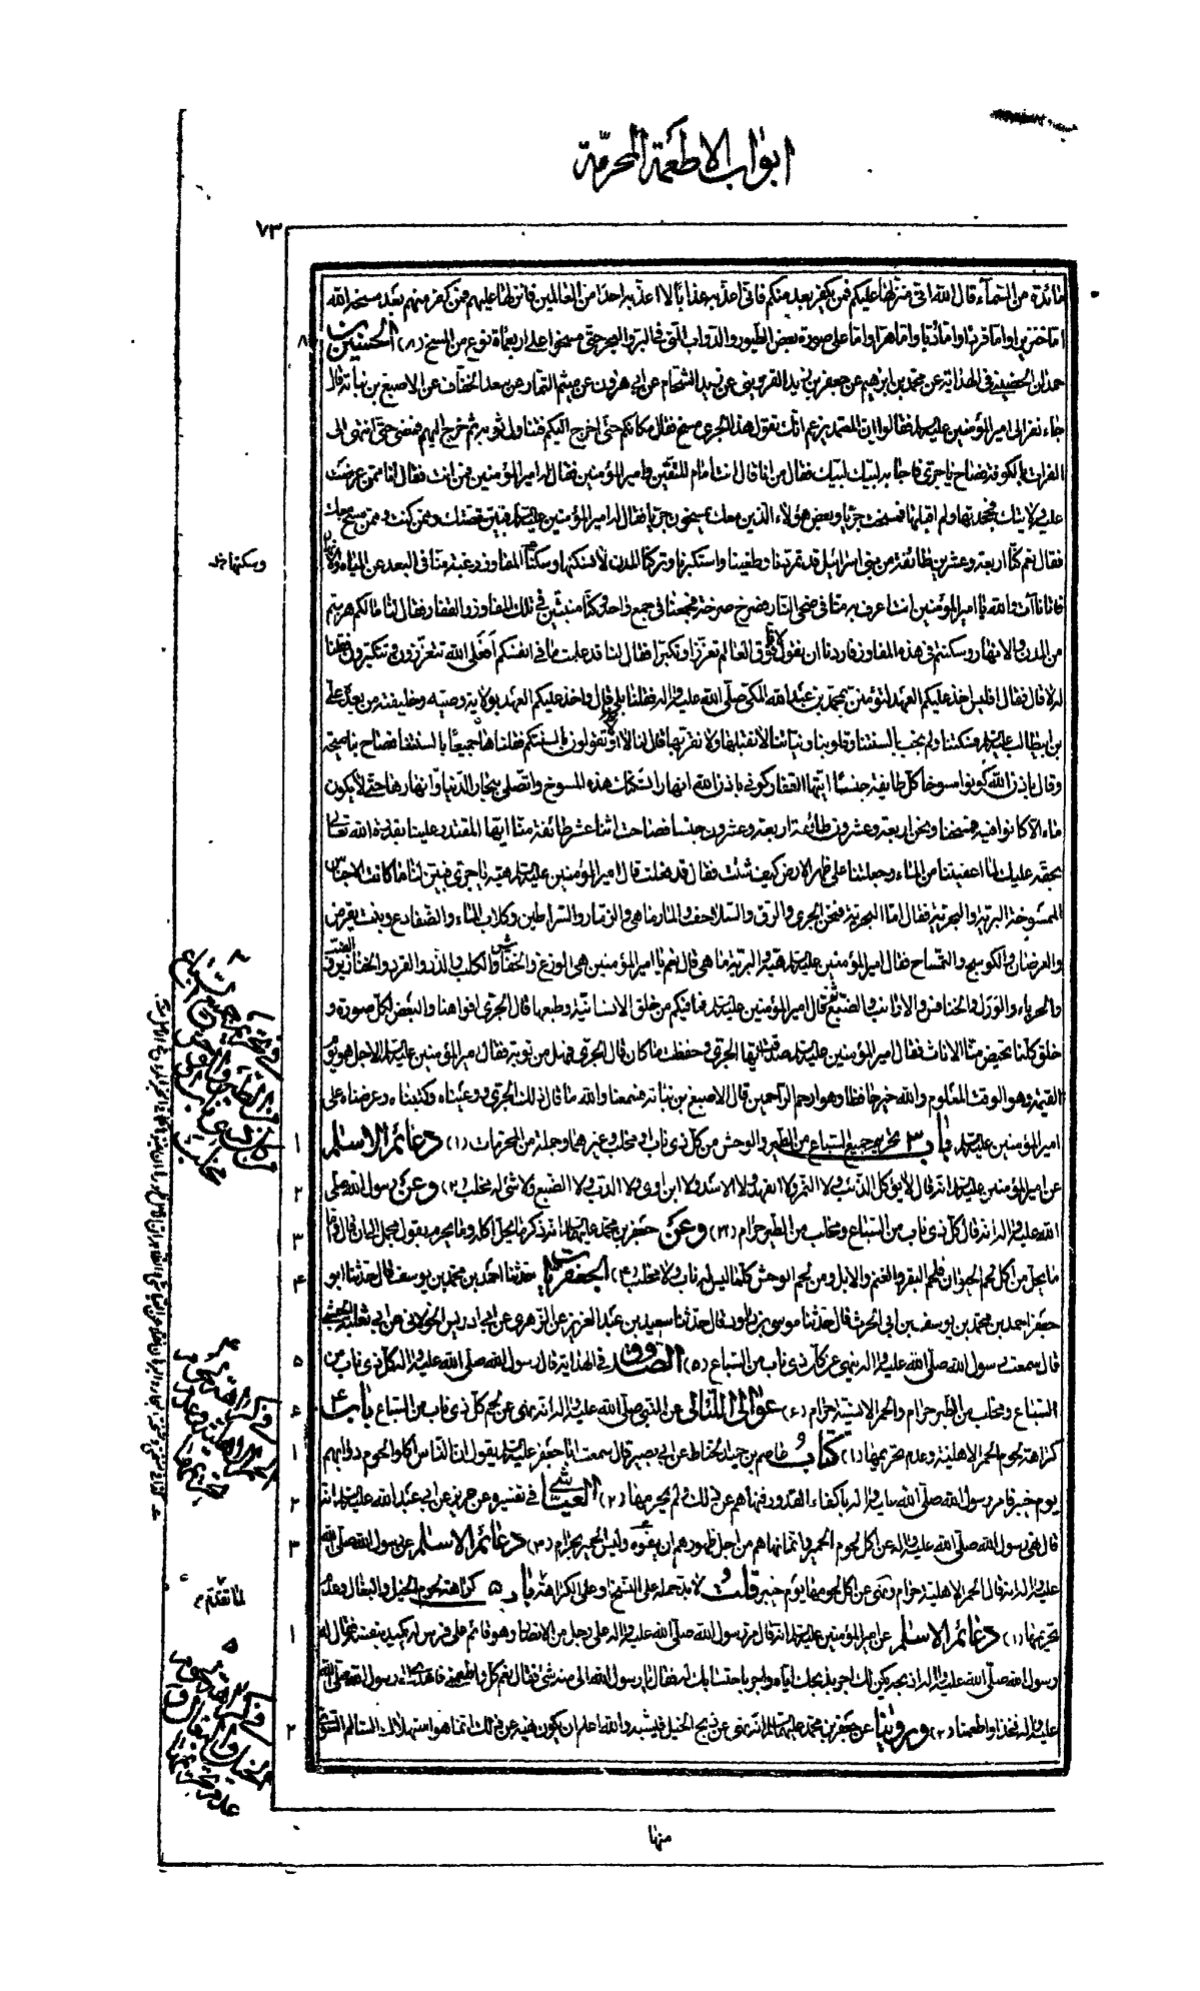 ابواب الاطعمة المحرّمة
٧٣
مائدة من السمآء قال الله انى منزلها عليكم فمن يكفر بعد منكم فانى اعذبه عذابا لا اعذبه احدا من العالمين فانزلها عليهم فمن كفر منهم بعد مسخه الله
اما خنزيرا واما قردا واما دبا واما هرا واما على صورة بعض الطيور والدواب التى فى البر والبحر حتى مسخوا على اربعمأة نوع من المسخ (٨) الحسين بن
حمدان الحضينى فى الهداية عن محمد بن ابرهيم عن جعفر بن زيد القزوينى عن زيد الشحام عن ابى هرون عن ميثم التمار عن سعد الخفاف عن الاصبغ بن نباتة قال
جاء نفر الى امير المؤمنين عليه السلام فقالوا ان المعتمد يزعم انك تقول هذا الجرى مسخ فقال مكانكم حتى اخرج اليكم فتناول ثوبه ثم خرج اليهم فمضى حتى انتهى الى
الفرات بالكوفة فصاح يا جرى فاجابه لبيك لبيك فقال من انا قال انت امام المتقين وامير المؤمنين فقال له امير المؤمنين فمن انت فقال انا ممن عرضت
عليه ولايتك فجحدتها ولم اقبلها فمسخت جريا وبعض هؤلاء الذين معك يمسخون جريا فقال له امير المؤمنين عليه السلام فبين قصتك وممن كنت ومن مسخ معك
فقال نعم كنا اربعة وعشرين طائفة من بنى اسرائيل قد تمردنا وطغينا واستكبرنا وتركنا المدن لا نسكنها وسكنا المفاوز رغبة منا فى البعد عن المياه
فاتانا آت والله يا امير المؤمنين انت اعرف به منا فى ضحى النهار فصرخ صرخة فجمعنا فى جمع واحد وكنا منبثين فى تلك المفاوز والقفار فقال لنا ما لكم هربتم
من المدن والانهار وسكنتم فى هذه المفاوز فاردنا ان نقول لانا فوق العالم تعززا وتكبرا فقال لنا قد علمت ما فى انفسكم أفعلى الله تتعززون وتتكبرون فقلنا
له لا قال فقال افليس اخذ عليكم العهد لتؤمنن بمحمد بن عبد الله المكى صلى الله عليه وآله فقلنا بلى قال واخذ عليكم العهد بولاية وصيه وخليفته من بعده على
بن ابيطالب عليه السلام فسكتنا ولم نجب بالسنتنا وقلوبنا ونياتنا لا نقبلها ولا نقر بها قال لنا أو تقولون بالسنتكم فقلناها جميعا بالسنتنا فصاح بنا صيحة
وقال باذن الله كونوا مسوخا كل طايفة جنسا ايتها القفار كونى باذن الله انهارا تسكنك هذه المسوخ واتصلى ببحار الدنيا وانهارها حتى لا يكون
ماء الا كانوا فيه فمسخنا ونحن اربعة وعشرون طائفة اربعة وعشرون جنسا فصاحت اثنتا عشر طائفة منا ايها المقتدر علينا بقدرة الله تعالى
بحقه عليك لما اعفيتنا من الماء وجعلتنا على ظهر الارض كيف شئت فقال قد فعلت قال امير المؤمنين عليه السلام هيه يا جرى فبين لنا ما كانت الاجناس
الممسوخة البرية والبحرية فقال اما البحرية فنحن الجرى والرق والسلاحف والمارماهى والزمار والسراطين وكلاب الماء والضفادع وبنت يقرض
والعرضان والكوسج والتمساح فقال امير المؤمنين عليه السلام هيه والبرية ما هى قال نعم يا امير المؤمنين هى الوزغ والخفاش والكلب والدر والقرد والخنازير والضب
والحرباء والورل والخنافس والارانب والضبع قال امير المؤمنين عليه السلام فما فيكم من خلق الانسانية وطبعها قال الجرى افواهنا والبعض لكل صورة و
خلق كلنا تحيض منا الاناث فقال امير المؤمنين عليه السلام صدقت ايها الجرى وحفظت ما كان قال الجرى فهل من توبة فقال امير المؤمنين عليه السلام الاجل هو يوم
القيمة وهو الوقت المعلوم والله خير حافظا وهو ارحم الراحمين قال الاصبغ بن نباتة فسمعنا والله ما قال ذلك الجرى ووعيناه وكتبناه وعرضناه على
امير المؤمنين عليه السلام باب ٣ تحريم جميع السباع من الطير والوحش من كل ذى ناب او مخلب وغيرهما وجملة من المحرمات (١) دعائم الاسلام
عن امير المؤمنين عليه السلام انه قال لا يؤكل الذئب ولا النمر ولا الفهد ولا الاسد ولا ابن آوى ولا الدب ولا الضبع ولا شئ له مخلب (٢) وعن رسول الله صلى
الله عليه وآله انه قال كل ذى ناب من السباع ومخلب من الطير حرام (٣) وعن جعفر بن محمد عليهما السلام انه ذكر ما يحل اكله وما يحرم بقول مجمل الى ان قال واما
ما يحل من اكل لحم الحيوان فلحم البقر والغنم والابل ومن لحم الوحش كلما ليس له ناب ولا مخلب (٤) الجعفريات حدثنا احمد بن محمد بن يوسف قال حدثنا ابو
جعفر احمد بن محمد بن يوسف بن ابى الحرث قال حدثنا موسى بن داود قال حدثنا سعيد بن عبد العزيز عن الزهرى عن ابى ادريس الخولانى عن ابى ثعلبة الخشنى
قال سمعت رسول الله صلى الله عليه وآله نهى عن كل ذى ناب من السباع (٥) الصدوق فى الهداية قال رسول الله صلى الله عليه وآله كل ذى ناب من
السباع ومخلب من الطير حرام والحمر الانسية حرام (٦) عوالى اللئالى عن النبى صلى الله عليه وآله انه نهى عن لحم كل ذى ناب من السباع باب ٤
كراهة لحوم الحمر الاهلية وعدم تحريمها (١) كتاب عاصم بن حميد الحناط عن ابى بصير قال سمعت ابا جعفر عليه السلام يقول ان الناس اكلوا لحوم دوابهم
يوم خيبر فامر رسول الله صلى الله عليه وآله باكفاء القدور فنهاهم عن ذلك ولم يحرمها (٢) العياشى فى تفسيره عن حريز عن ابى عبد الله عليه السلام انه
قال نهى رسول الله صلى الله عليه وآله عن اكل لحوم الحمير وانما نهاهم من اجل ظهورهم ان يفنوه وليس الحمير بحرام (٣) دعائم الاسلام عن رسول الله صلى الله
عليه وآله انه قال الحمر الاهلية حرام ونهى عن اكل لحومها يوم خيبر قلت لا بد حمله على النسخ او على الكراهة باب ٥ كراهة لحوم الخيل والبغال وعدم
تحريمها (١) دعائم الاسلام عن امير المؤمنين عليه السلام انه قال مر رسول الله صلى الله عليه وآله على رجل من الانصار وهو قائم على فرس له يكيد بنفسه فقال له
رسول الله صلى الله عليه وآله اذبحه يكن لك اجر بذبحك اياه واجر باحتسابك له فقال يا رسول الله الى منه شئ فقال نعم كل واطعمنى فاهدى الى رسول الله صلى الله
عليه وآله فخذا واطعمنا (٢) وروينا عن جعفر بن محمد عليهما السلام انه نهى عن ذبح الخيل فيشبه والله اعلم ان يكون نهيه عن ذلك انما هو استهلاك السالم السوى
منها